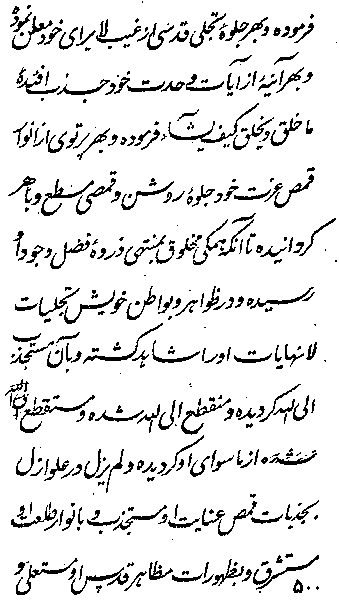 فرموده و بهر جلوهٔ تجلی قدسی از غیب لا برای خود معلن نموده
و بهر آیهٔ از آیات وحدت خود جذب افئدهٔ
ما خلق و یخلق کیف یشآء فرموده و بهر پرتوی از انوار
قمص عزت خود جلوهٔ روشن و قمصی مسطع و باهر
کردانیده تا آنکه همکی مخلوق بمنتهی ذروهٔ فضل وجود او
رسیده و در ظواهر و بواطن خویش تجلیات
لانهایات او را شاهد کشته و بآن مستجذب
الی الله کردیده و منقطع الی الله شده و مستقطع
شده از ماسوای او کردیده و لم یزل در علو ازل
بجذبات قمص عنایت او مستجذب و بانوار طلعت او
مستشرق و بظهورات مظاهر قدس او مستعلی و
۵۰۰